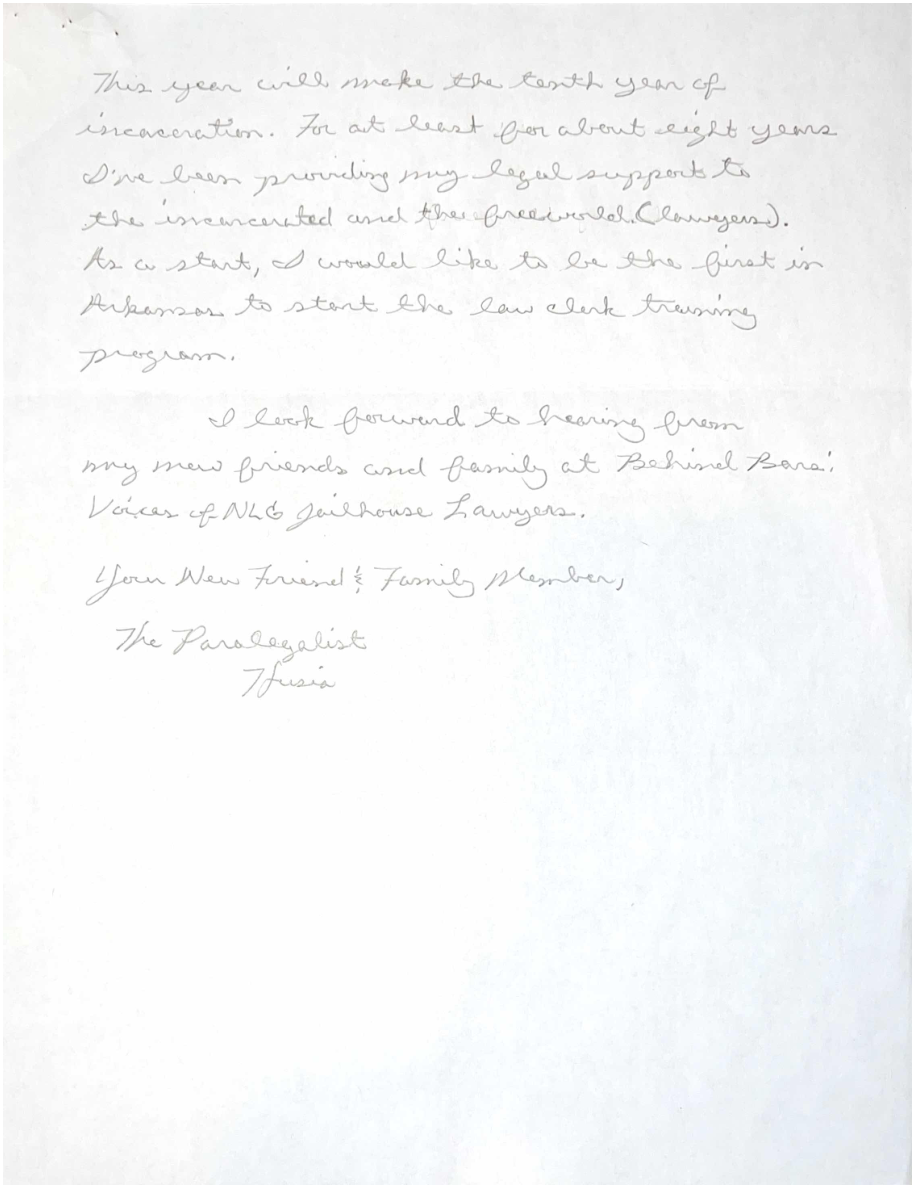 This year will make the tenth year of
incaceration. For at least for about eight years
I've been providing my legal support to
the incarcerated and the freeworld (lawyers).
As a start, I would like to be the first in
Arkansas to start the law clerk training
program.
I look forward to hearing from
my new friends and family at Behind Bars:
Voices of NLG Jailhouse Lawyers.
Your New Friend & Family Member,
The Paralegalist